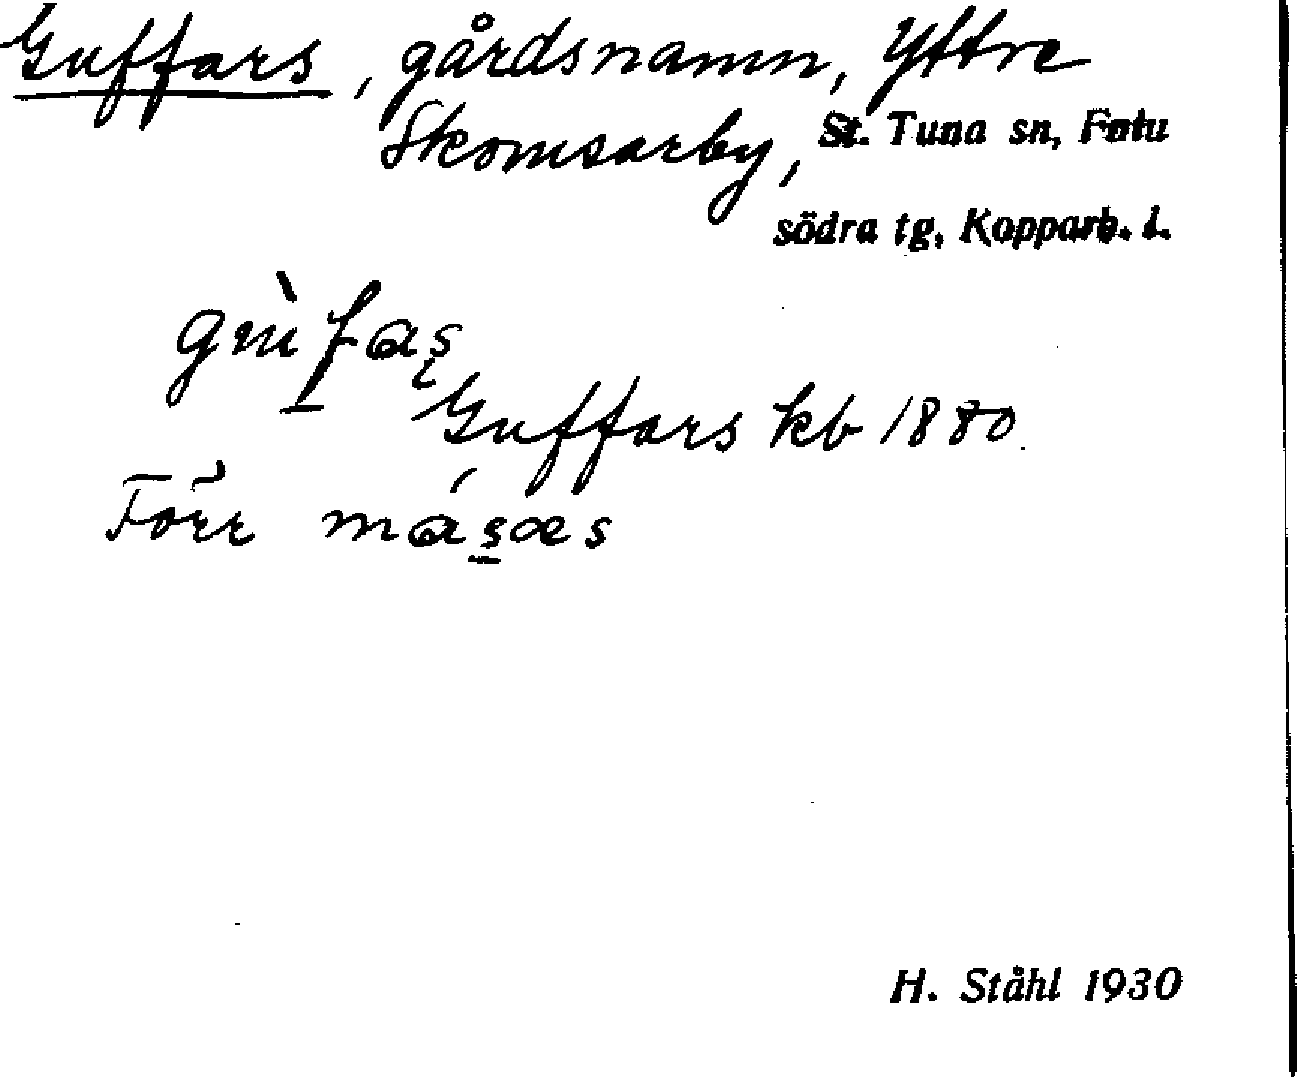 Guffars, gårdsnamn, Yttre
Skomsarby, St. Tuna sn, Falu
södra tg, Kopparb. l.
Guffars kb 1880.
Förr
H. Ståhl 1930